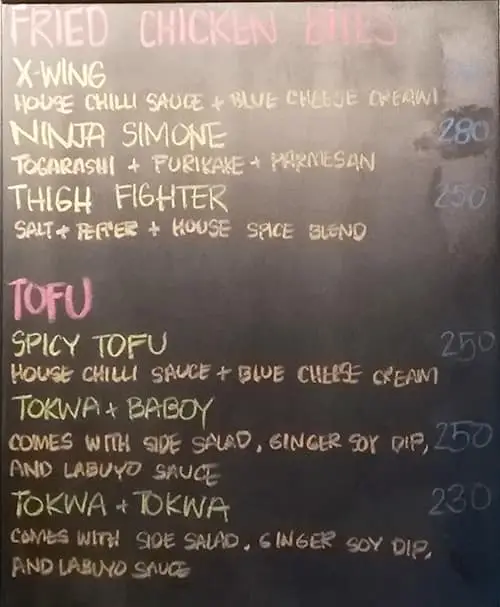 FRIED CHICKEN BITES
X-WING
HOUSE CHILLI SAUCE + BLUE CHEESE CREAM
NINJA SIMONE 280
TOGARASHI + FURIKAKE + PARMESAN
THIGH FIGHTER 250
SALT + PEPPER + HOUSE SPICE BLEND
TOFU
SPICY TOFU 250
HOUSE CHILLI SAUCE + BLUE CHEESE CREAM
TOKWA + BABOY
COMES WITH SIDE SALAD, GINGER SOY DIP, 250
AND LABUYO SAUCE
TOKWA + TOKWA 230
COMES WITH SIDE SALAD, GINGER SOY DIP,
AND LABUYO SAUCE